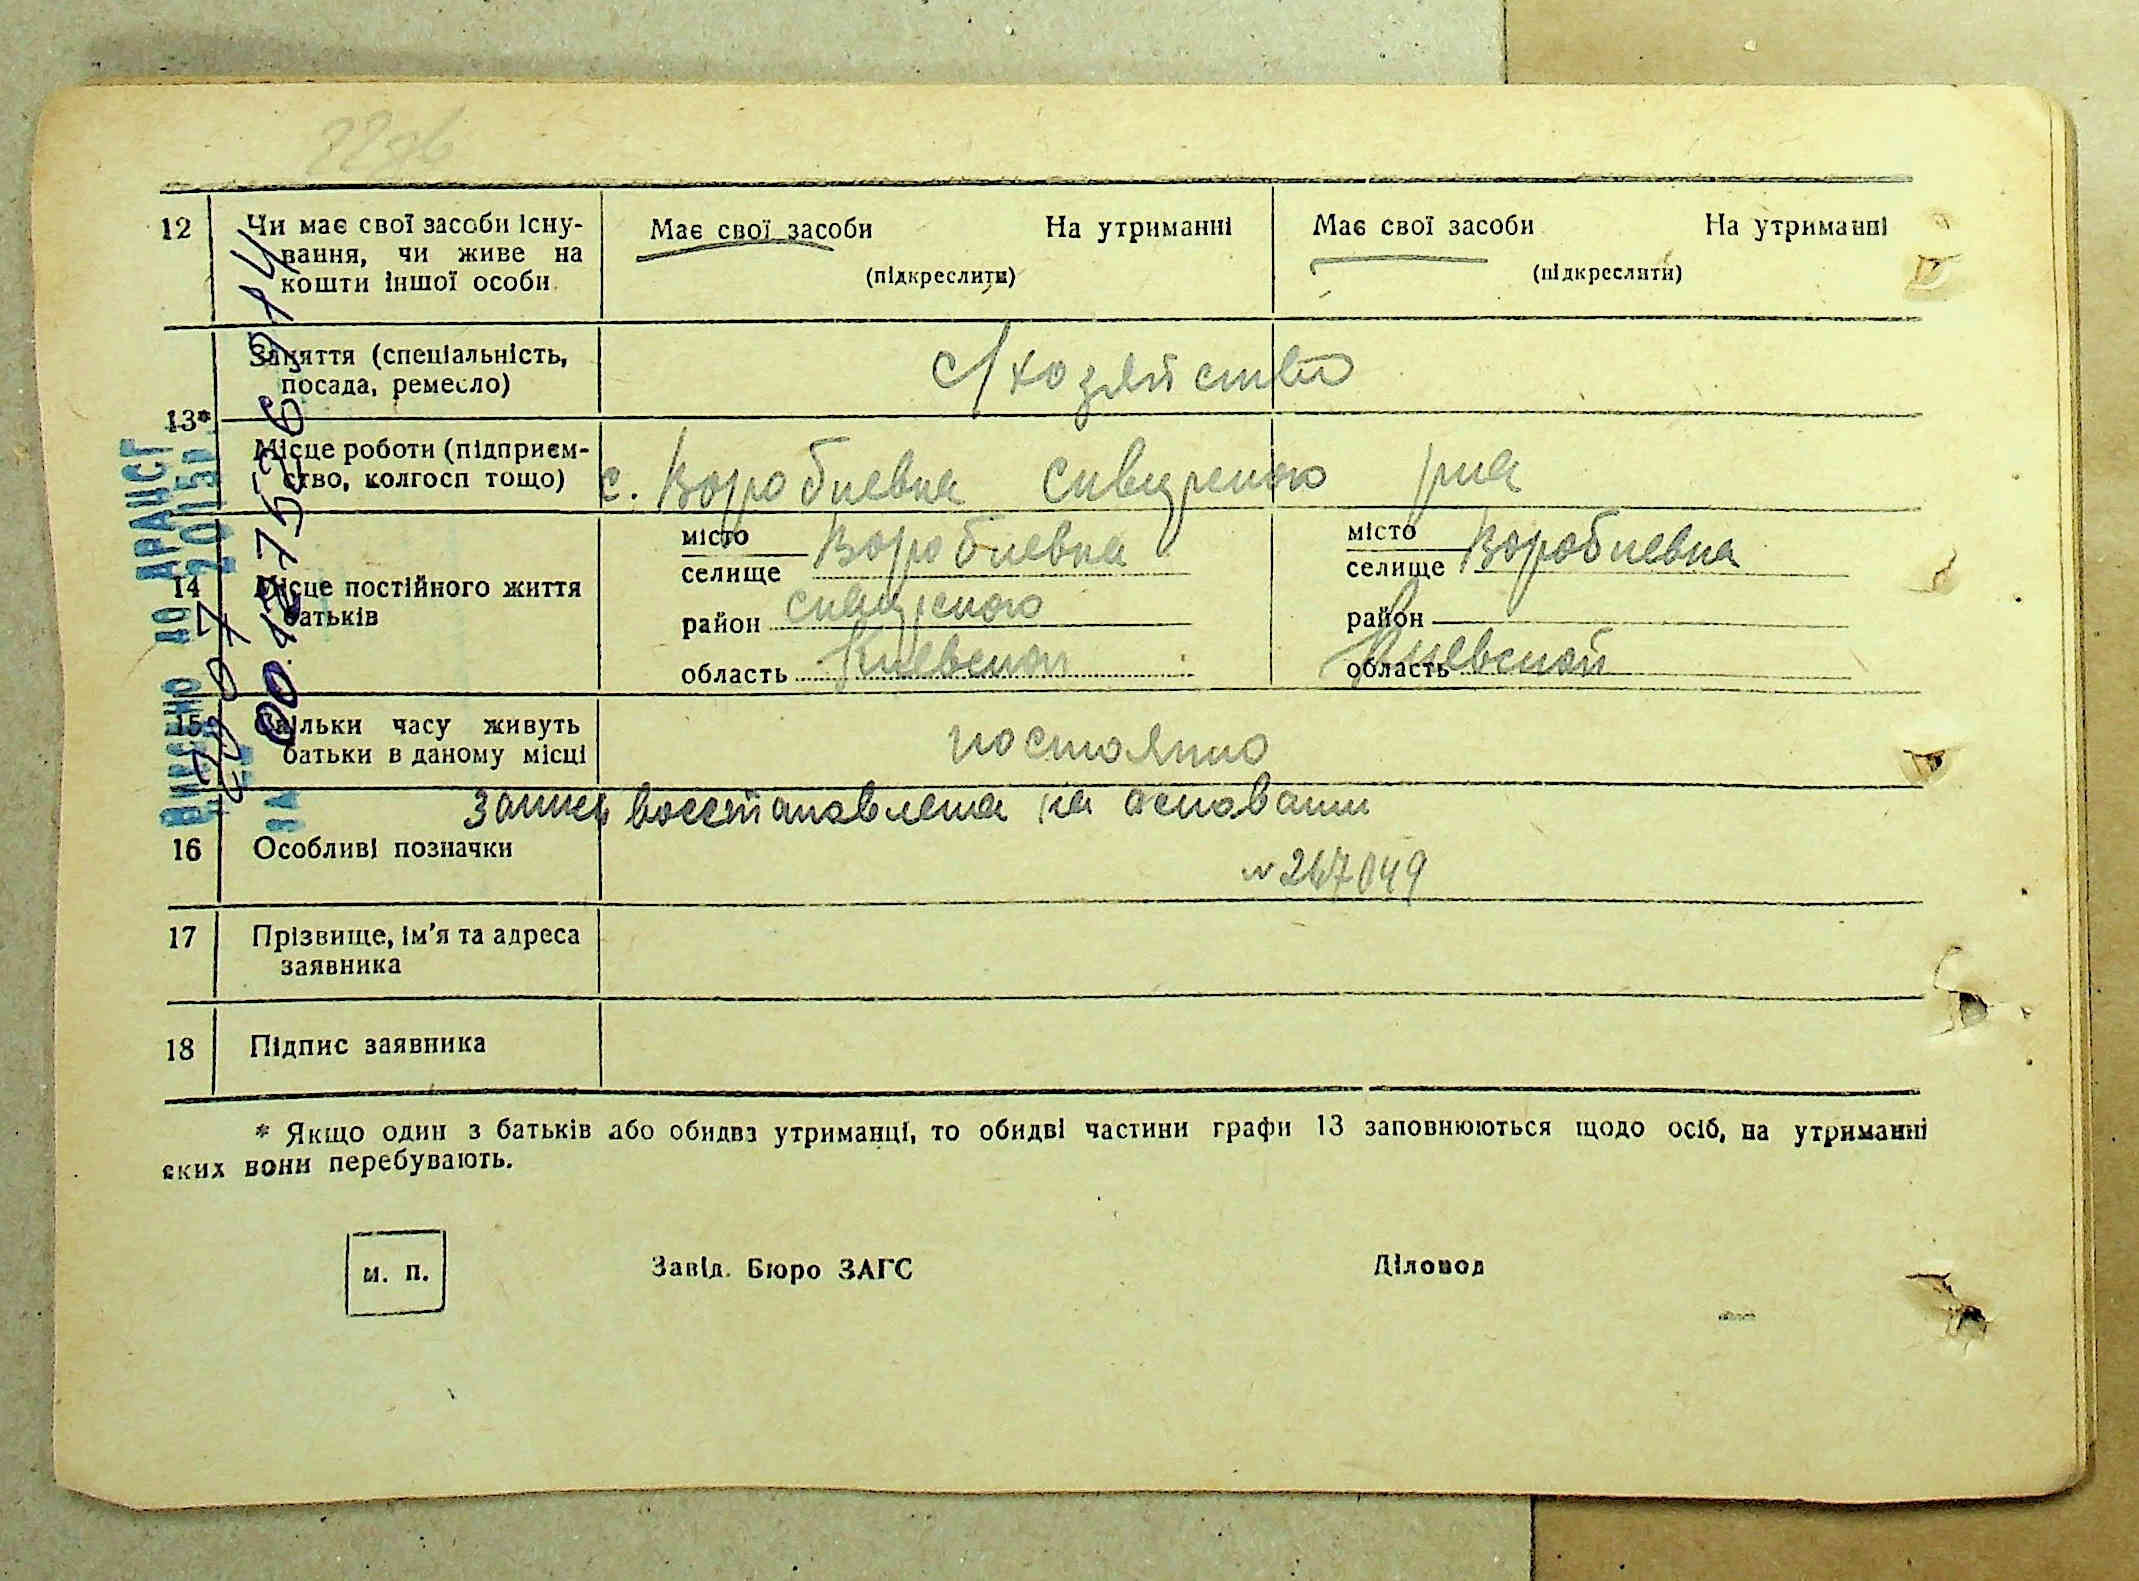 12 Чи має свої засоби існу-
вання, чи живе на
кошти іншої особи
Має свої засоби На утриманні
(підкреслити)
Має свої засоби На утриманні
(підкреслити)
13*
Заняття (спеціальність,
посада, ремесло)
с/хозяйство
Місце роботи (підприєм-
ство, колгосп тощо)
с. Воробиевка
14 Місце постійного життя
батьків
місто
селище Воробиевка
район
область Киевской
місто
селище Воробиевка
район
область Киевской
15 Скільки часу живуть
батьки в даному місці
постоянно
Запись восстановлена на основании
16 Особливі позначки
№ 267049
17 Прізвище, ім'я та адреса
заявника
18 Підпис заявника
* Якщо один з батьків або обидва утриманці, то обидві частини графи 13 заповнюються щодо осіб, на утриманні
яких вони перебувають.
м. п.
Завід. Бюро ЗАГС
Діловод
ВНЕСЕНО ДО ДРАЦСГ
2015
ЗА